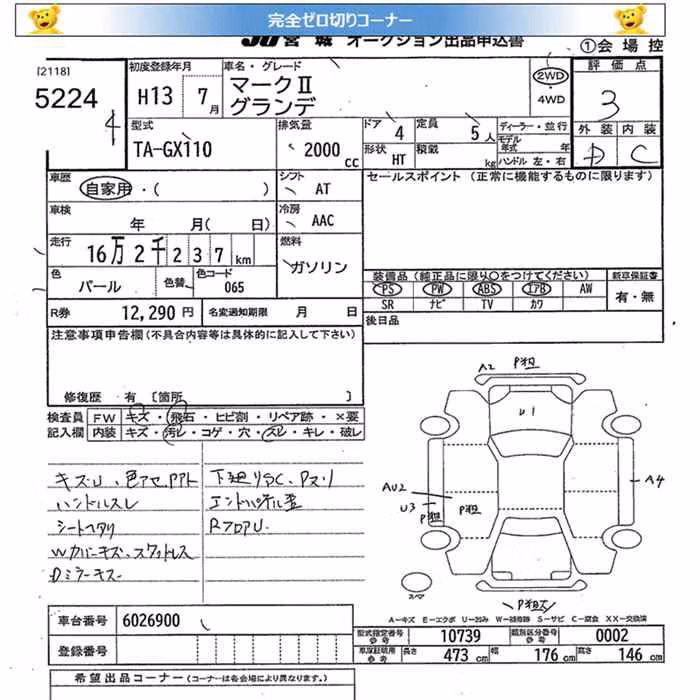 完全ゼロ切りコーナー
JU 宮城 オークション出品申込書
①会場控
[2118]
5224
4
初度登録年月
H13 7月
車名・グレード
マークⅡ
グランデ
2WD
・
4WD
評価点
3
外装 内装
D C
型式
TA-GX110
排気量
2000 cc
ドア 4
定員 5人
形状 HT
積載 kg
ディーラー・並行
モデル年式 年
ハンドル 左・右
車歴
自家用・( )
シフト
AT
セールスポイント (正常に機能するものに限ります)
車検
年 月( 日)
冷房
AAC
走行
16万2千237km
燃料
ガソリン
色
パール
色替
色コード
065
装備品 (純正品に限り○をつけてください)
新車保証書
PS PW ABS エアB AW
SR ナビ TV カワ
有・無
R券 12,290円
名変通知期限 月 日
後日品
注意事項申告欄 (不具合内容等は具体的に記入して下さい)
修復歴 有 [箇所 ]
検査員記入欄
FW キズ・飛石・ヒビ割・リペア跡・×要
内装 キズ・汚レ・コゲ・穴・スレ・キレ・破レ
キズU、色アセ、PPト
ハンドルスレ
シートヘタリ
Wカバーキズ、スワットレス
Dミラーキズ
下廻りSC、Pヌリ
エンドパネル歪
RフロアU
A2 P担
U1
AU2
U3
P担
P担
A4
スペア
P担歪
A−キズ E−エクボ U−凹み W−補修跡 S−サビ C−腐食 XX−交換済
車台番号 6026900
登録番号
型式指定番号参考 10739
類別区分番号参考 0002
車庫証明用参考
長さ 473cm
幅 176cm
高さ 146cm
希望出品コーナー (コーナーは各会場により異なります。)